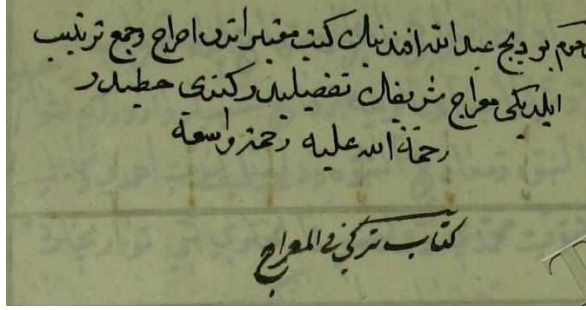 مرحوم بو ديج عبد الله افندينك كتب معتبراتدن اخراج وجمع ترتيب
ايلديكى معراج شريفك تفصيليدر كندى خطيدر
رحمة الله عليه رحمة واسعة
كتاب تركى فى المعراج